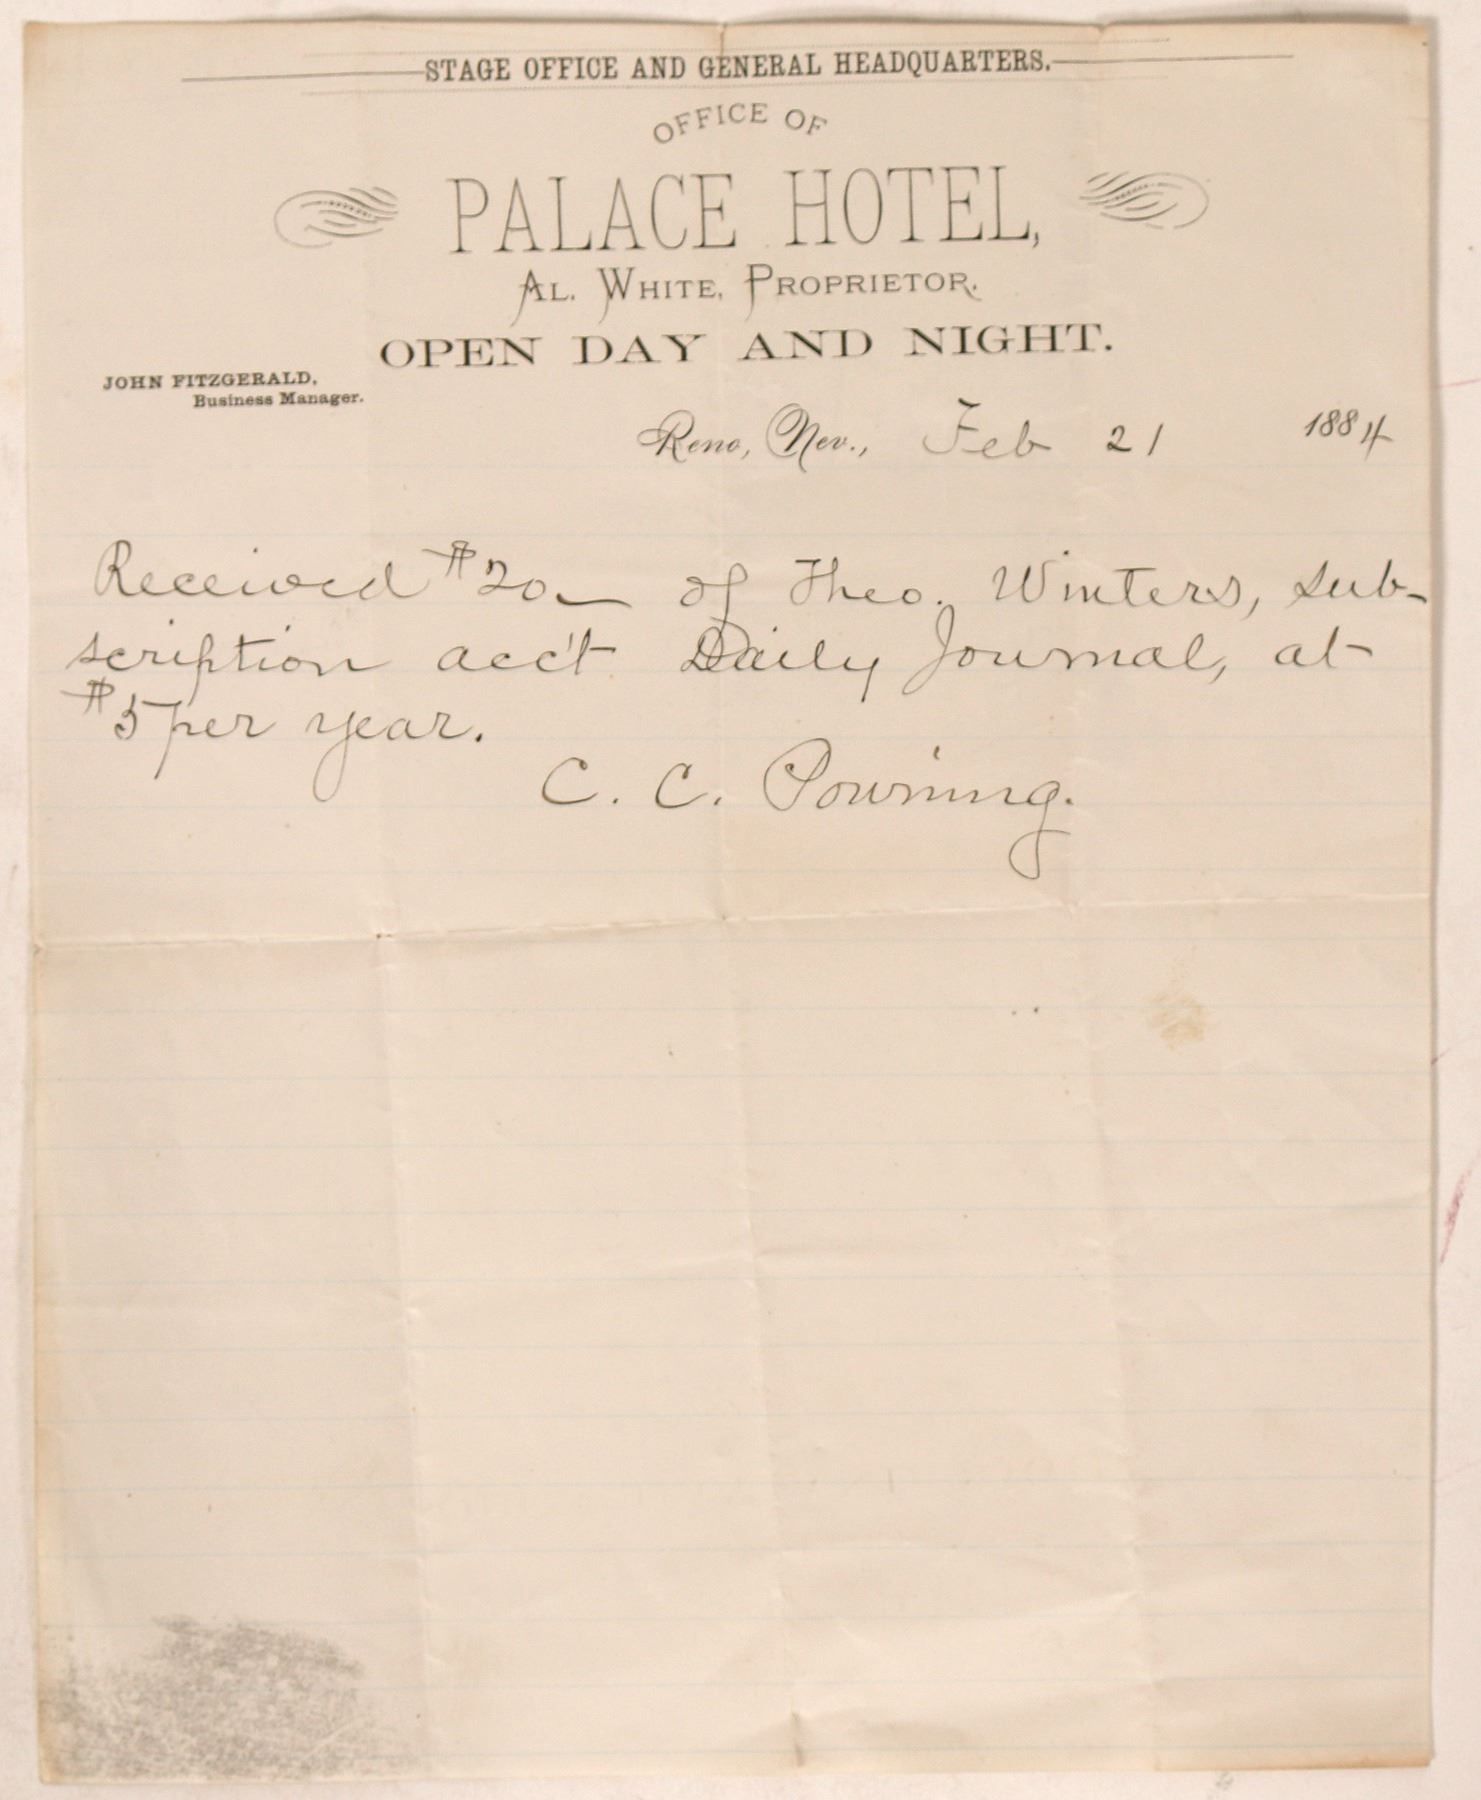 STAGE OFFICE AND GENERAL HEADQUARTERS.
OFFICE OF
PALACE HOTEL,
AL. WHITE, PROPRIETOR.
OPEN DAY AND NIGHT.
JOHN FITZGERALD,
Business Manager.
Reno, Nev., Feb 21 1884
Received $20_ of Theo. Winters, sub-
scription acc't Daily Journal, at
$5 per year.
C. C. Powning.